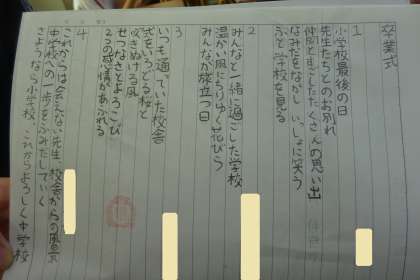 卒業式
1
小学校最後の日
先生たちとのお別れ
仲間と過ごしたたくさんの思い出
なみだをながし いっしょに笑う
ふと学校を見る
2
みんなと一緒に過ごした学校
温かい風にちりゆく花びら
みんなが旅立つ日
3
いつも通っていた校舎
式をいろどる桜と
吹きぬける風
せつなさとよろこび
2つの感情があふれる
4
これからは会えない先生、校舎からの風景
中学校への一歩をふみだしていく
さようなら小学校、これからよろしく中学校